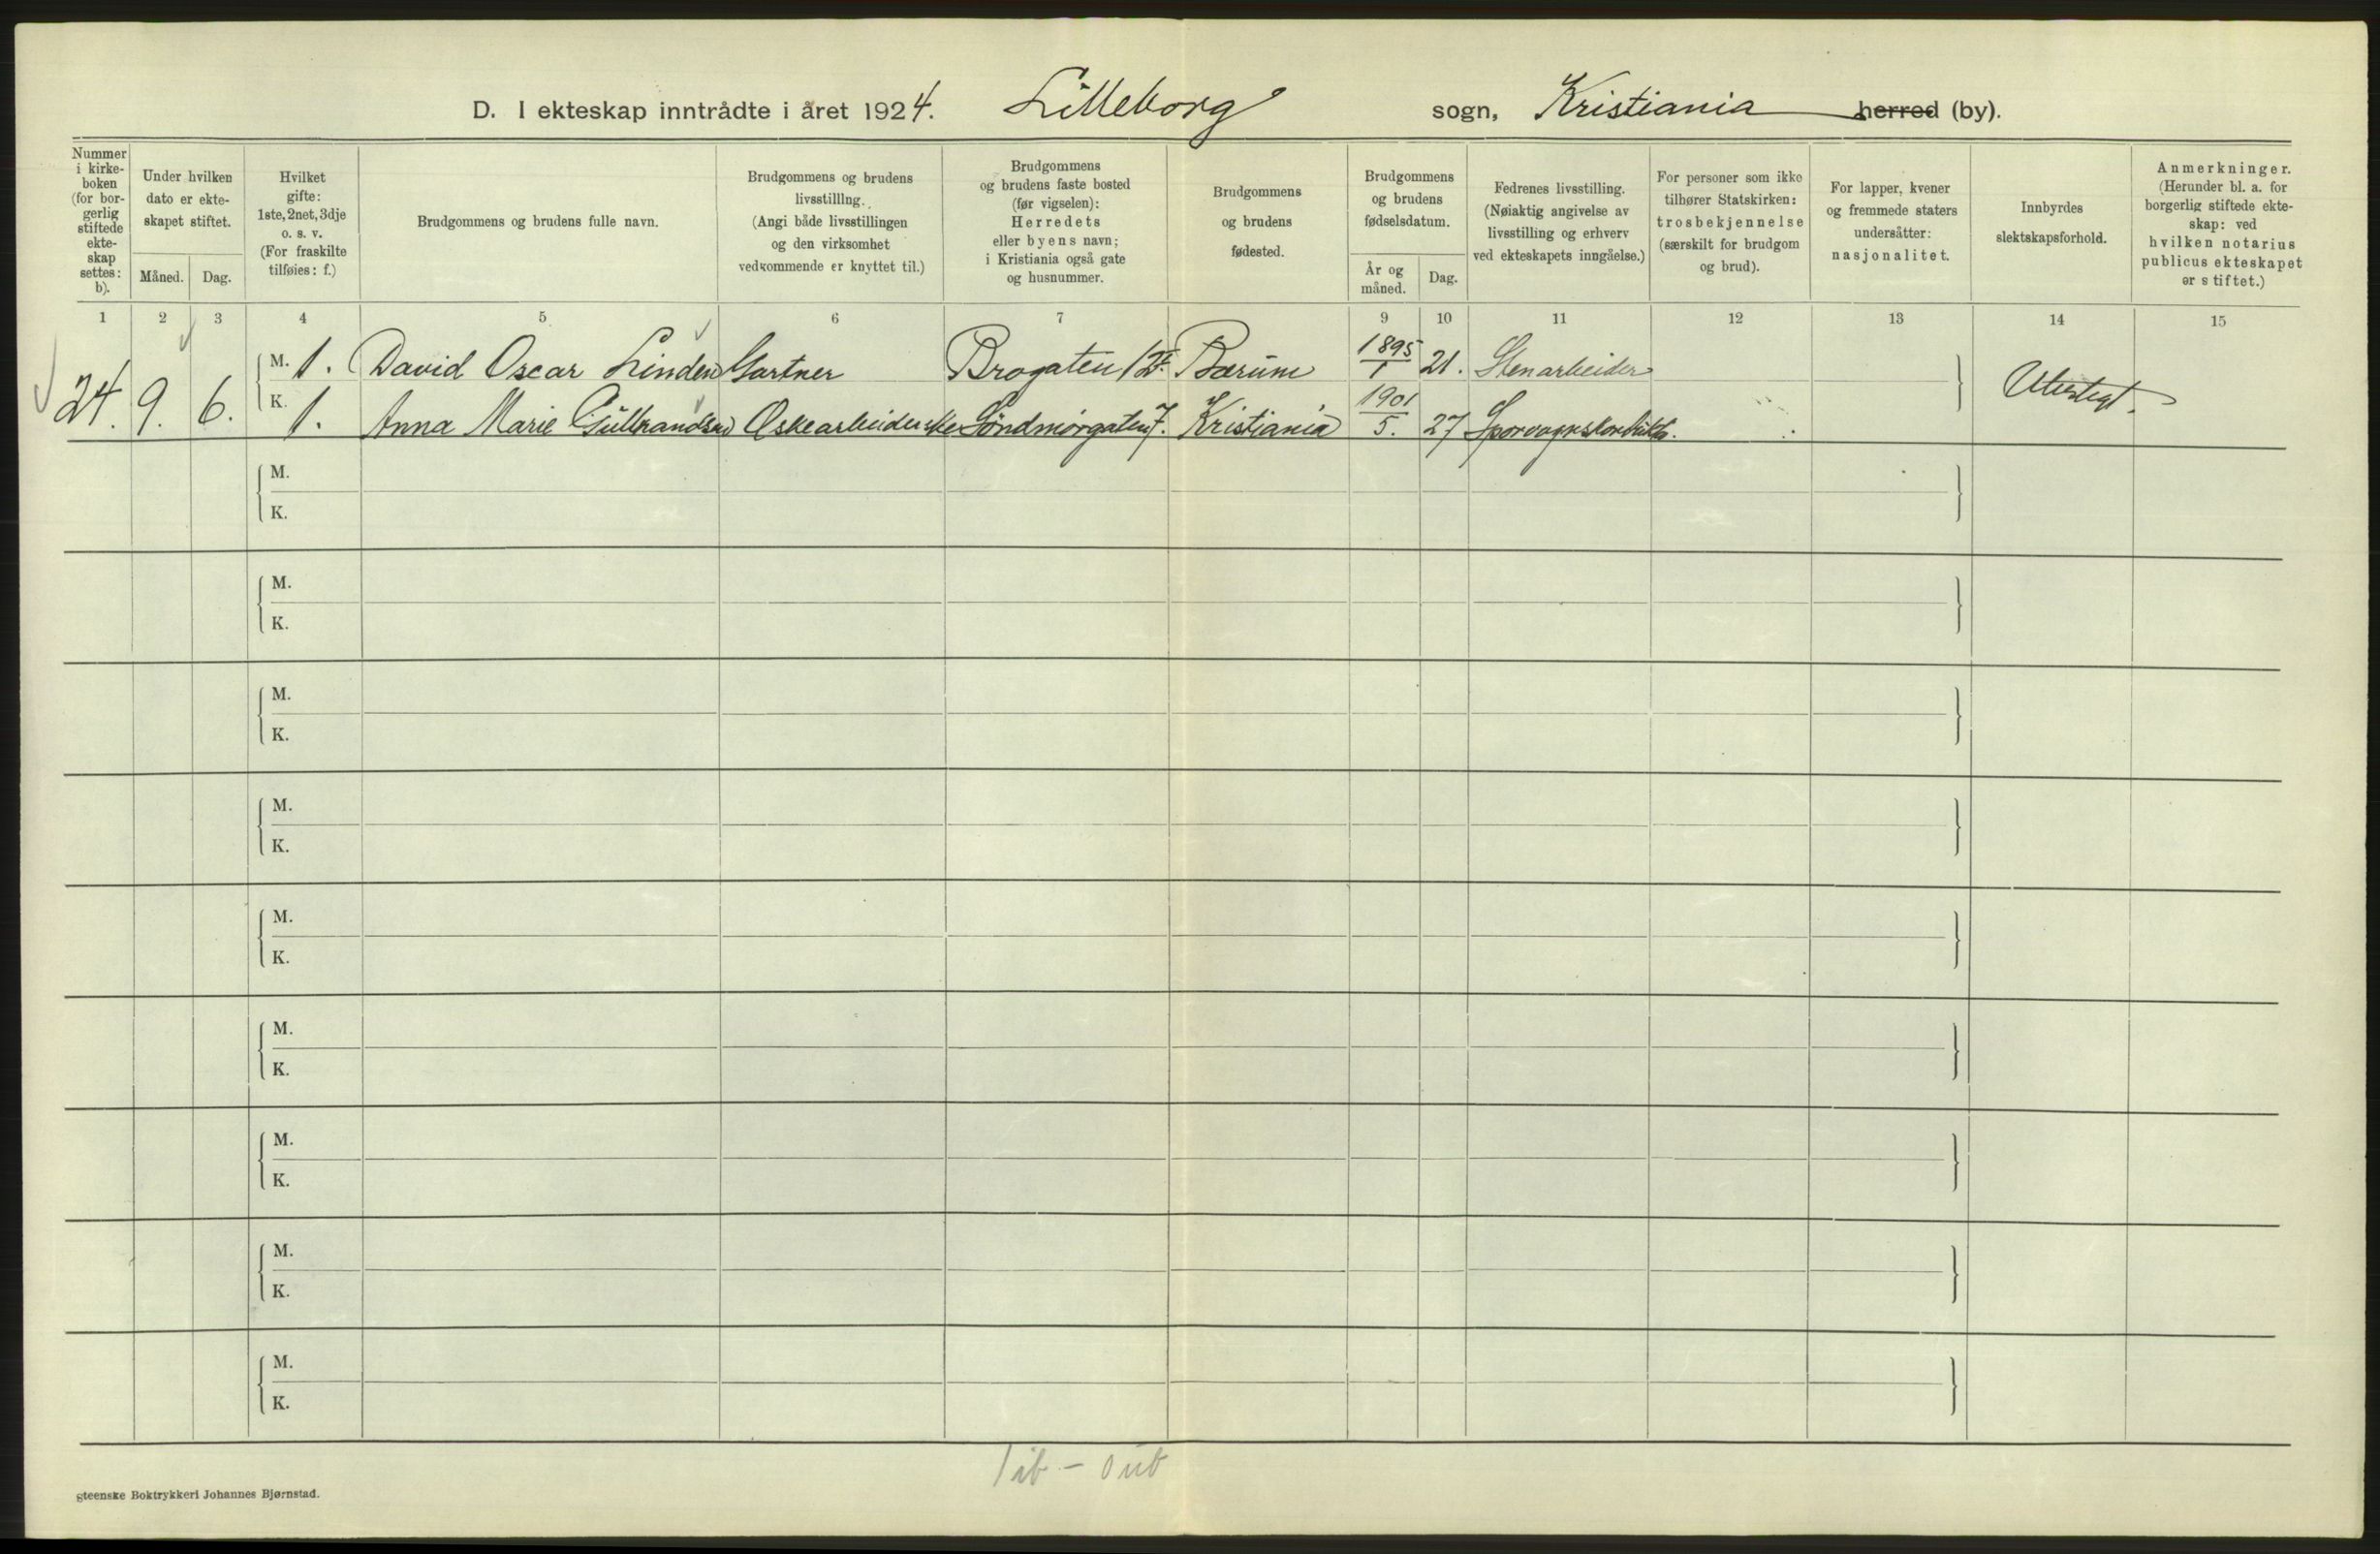 D. I ekteskap inntrådte i året 1924. Lilleborg sogn, Kristiania herred (by).
Nummer
i kirke-
boken
(for bor-
gerlig
stiftede
ekte-
skap
settes:
b).
Under hvilken
dato er ekte-
skapet stiftet.
Måned. Dag.
Hvilket
gifte:
1ste, 2net, 3dje
o. s. v.
(For fraskilte
tilføies: f.)
Brudgommens og brudens fulle navn.
Brudgommens og brudens
livsstilllng.
(Angi både livsstillingen
og den virksomhet
vedkommende er knyttet til.)
Brudgommens
og brudens faste bosted
(før vigselen):
Herredets
eller byens navn;
i Kristiania også gate
og husnummer.
Brudgommens
og brudens
fødested.
Brudgommens
og brudens
fødselsdatum.
År og
måned.
Dag.
Fedrenes livsstilling.
(Nøiaktig angivelse av
livsstilling og erhverv
ved ekteskapets inngåelse.)
For personer som ikke
tilhører Statskirken:
trosbekjennelse
(særskilt for brudgom
og brud).
For lapper, kvener
og fremmede staters
undersåtter:
nasjonalitet.
Innbyrdes
slektskapsforhold.
Anmerkninger.
(Herunder bl. a. for
borgerlig stiftede ekte-
skap: ved
hvilken notarius
publicus ekteskapet
er stiftet.)
1 2 3 4 5 6 7 8 9 10 11 12 13 14 15
24. 9. 6.
M. 1. David Oscar Linden Gartner Brogaten 12 Bærum 1895/1 21. Stenarbeider
K. 1. Anna Marie Gulbrandsen Øskearbeiderske Søndmørgaten 7. Kristiania 1901/5. 27 Sporvognskonduktør.
Ubeslegt.
M.
K.
M.
K.
M.
K.
M.
K.
M.
K.
M.
K.
M.
K.
M.
K.
M.
K.
1 ib - 0 ub
gteenske Boktrykkeri Johannes Bjørnstad.